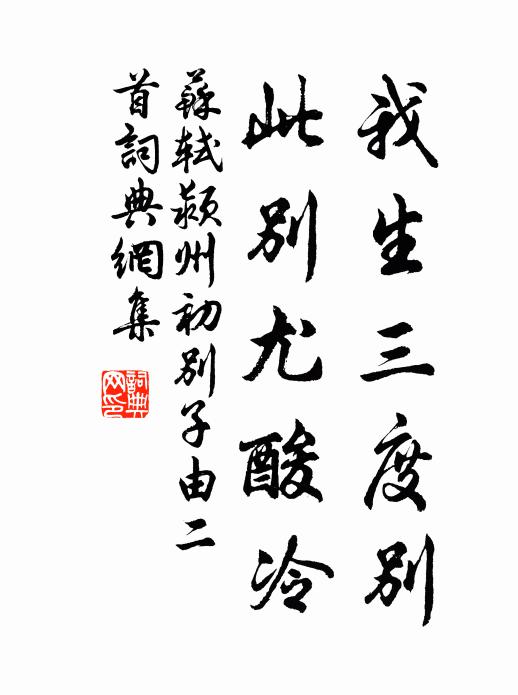 我生三度别
此别尤酸冷
蘇軾潁州初别子由二
首詞典網集
詞典
网印